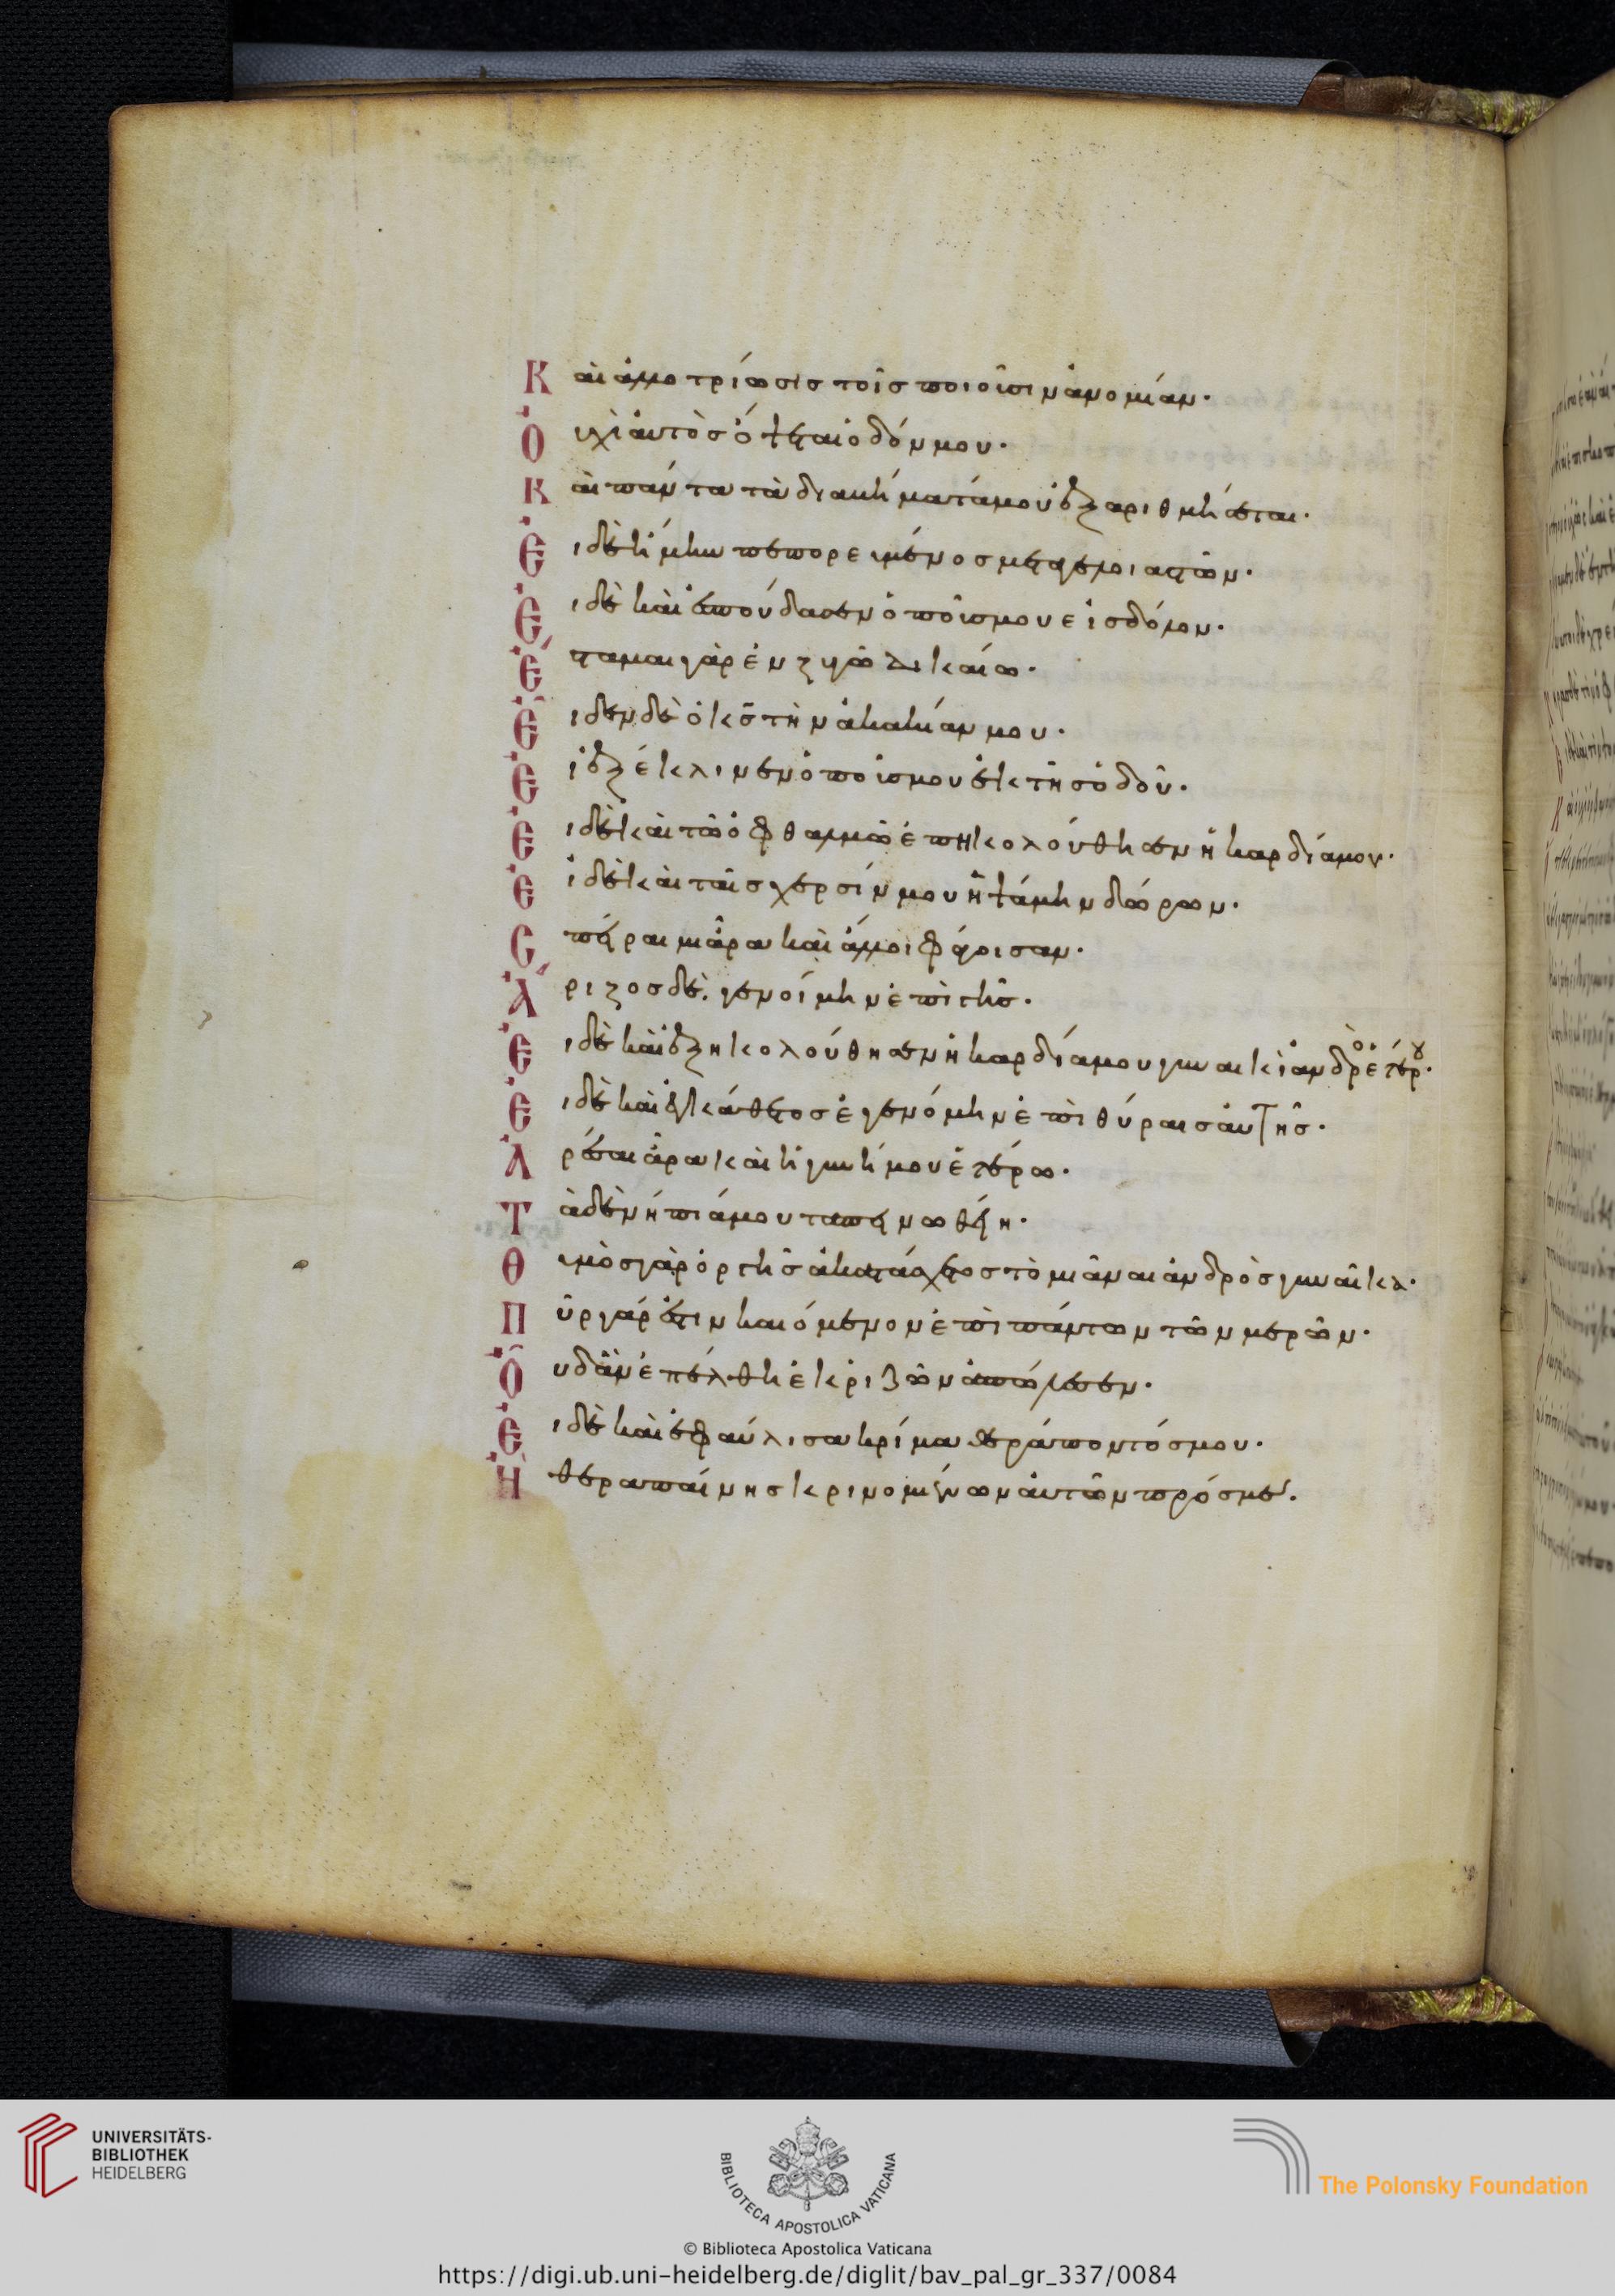 Καὶ ἀλλοτρίωσις τοῖς ποιοῦσιν ἀνομίαν·
Οὐχὶ αὐτὸς ὄψεται ὁδόν μου·
Καὶ πάντα τὰ διαβήματά μου ἐξαριθμήσεται·
Εἰ δὲ ἤμην πεπορευμένος μετὰ γελοιαστῶν·
Εἰ δὲ καὶ ἐσπούδασεν ὁ ποῦς μου εἰς δόλον·
Ἕσταμαι γὰρ ἐν ζυγῶ δικαίω·
Εἶδεν δὲ ὁ κς τὴν ἀκακίαν μου·
Εἰ ἐξέκλινεν ὁ ποῦς μου ἐκ τῆς ὁδοῦ·
Εἰ δὲ καὶ τῶ ὀφθαλμῶ ἐπηκολούθησεν ἡ καρδία μου·
Εἰ δὲ καὶ ταῖς χερσίν μου ἡψάμην δώρων·
Σπεῖραιμι ἄρα καὶ ἄλλοι φάγοισαν·
Ἄριζος δὲ γενοίμην ἐπὶ γῆς·
Εἰ δὲ καὶ ἐξηκολούθησεν ἡ καρδία μου γυναικὶ ἀνδρὸς ἑτέρου·
Εἰ δὲ καὶ ἐγκάθετος ἐγενόμην ἐπὶ θύραις αὐτῆς·
Ἀρέσαι ἄρα καὶ ἡ γυνή μου ἑτέρω·
Τὰ δὲ νήπιά μου ταπεινωθείη·
Θυμὸς γὰρ ὀργῆς ἀκατάσχετος τὸ μιᾶναι ἀνδρὸς γυναῖκα·
Πῦρ γάρ ἐστιν καιόμενον ἐπὶ πάντων τῶν μερῶν·
Οὗ δ' ἂν ἐπέλθη ἐκ ῥιζῶν ἀπώλεσεν·
Εἰ δὲ καὶ ἐφαύλισα κρίμα θεράποντός μου·
Ἢ θεραπαίνης κρινομένων αὐτῶν πρός με·
UNIVERSITÄTS-
BIBLIOTHEK
HEIDELBERG
BIBLIOTECA APOSTOLICA VATICANA
The Polonsky Foundation
© Biblioteca Apostolica Vaticana
https://digi.ub.uni-heidelberg.de/diglit/bav_pal_gr_337/0084